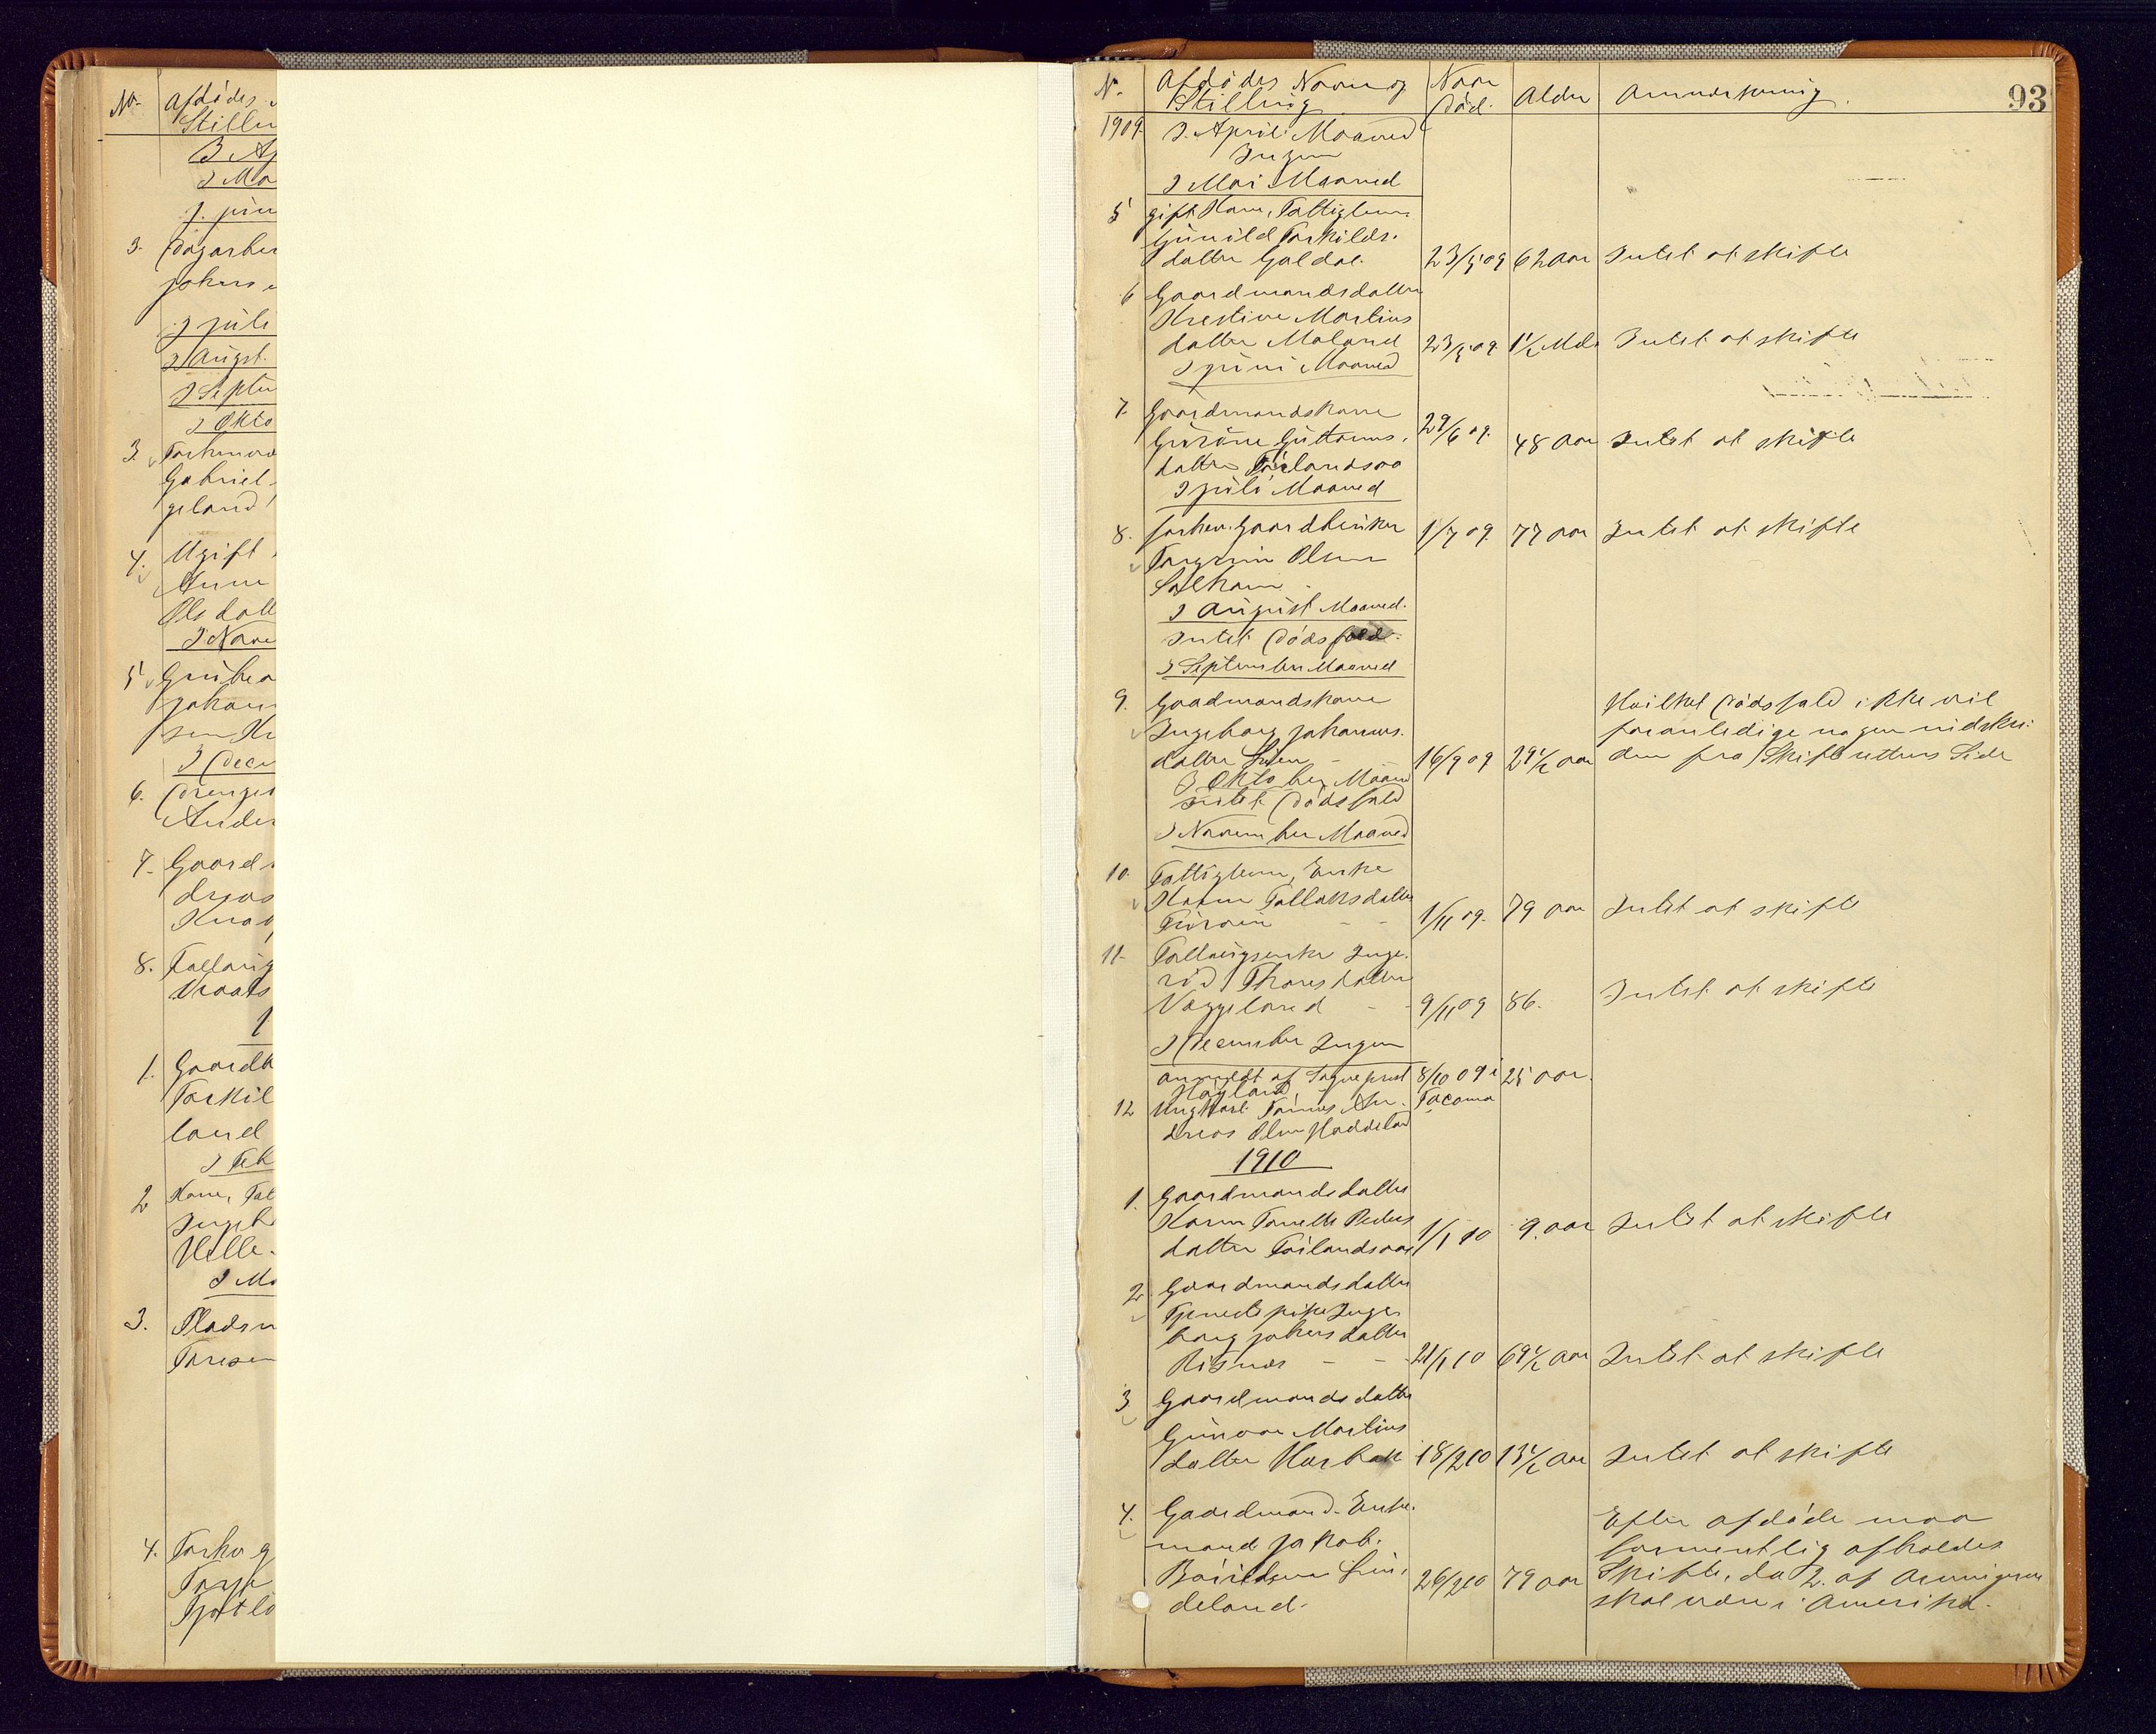 No. Afdødes
Stillin
3 Ap
I Ma
J. Jun
3. Dagarbei
Johns
I Juli
I August
I Septe
I Okto
3. Forhenvæ
Gabriel
geland
4. Ugift
Anne
Ols datt
I Nove
5 Grube
Johan
sen
I Dece
6. Drenge
Ander
7. Gaard
dreas
Knud
8.
1
1. Gaardb
Torkil
land
I Feb
2 Kone, Fat
Ingeb
Helle
I Ma
3. Pladsm
Tores
4.
Nr. Afdødes Navn og Stilling Naar Død. Alder Anmærkning. 93
1909. I April Maaned
Ingen
I Mai Maaned
5 gift Kone, Fattiglem
Gunild Torkilds.
datter Galdal. 23/5 09 62 aar Intet at skifte
6 Gaardmandsdatter
Kirstine Martins
datter Maland 23/5 09. 1 1/2 Mdr Intet at skifte
I Juni Maaned
7. Gaardmandskone
Guttorms.
datter 29/6 09. 48 aar Intet at skifte
I Juli Maaned
8. forhen. Gaardbruker 1/7 09. 77 aar Intet at skifte
Torgrim Olsen
I August Maaned.
Intet Dødsfald.
I September Maaned
9. Gaardmandskone
Ingeborg Johannes.
datter Lien 16/9 09 29 1/2 aar
Hvilket Dødsfald ikke vil
foranledige nogen
den fra Skifterettens Side
I Oktober Maaned
intet Dødsfald
I November Maaned
10. Fattiglem, Enke
Karen Tallaksdatter
1/11 09. 79 aar Intet at skifte
11. Inge.
rid Thoresdatter
Væggeland - - 9/11 09 86. Intet at skifte
I December Ingen
anmeldt af Sogneprest 8/10 09 i 25 aar.
Høyland Tacoma
12 Ungkarl An.
dreas Olsen Haddeland
1910
1. Gaardmandsdatter
Karen Peders
datter 1/1 10 9. aar Intet at skifte
2. Gaardmandsdatter
Tjenestepike Inge
borg Johnsdatter
Risnes - - 21/1 10 69 1/2 aar Intet at skifte
3 Gaardmandsdatter
Gunvor Martins
datter 18/2 10 13 1/2 aar Intet at skifte
4. Gaardmand. Enke.
mand Jakob.
Lin,
deland. 26/2 10 79 aar
Efter afdøde maa
formentlig afholdes
Skifte, da 2. af Arvingerne
skal være i Amerika.